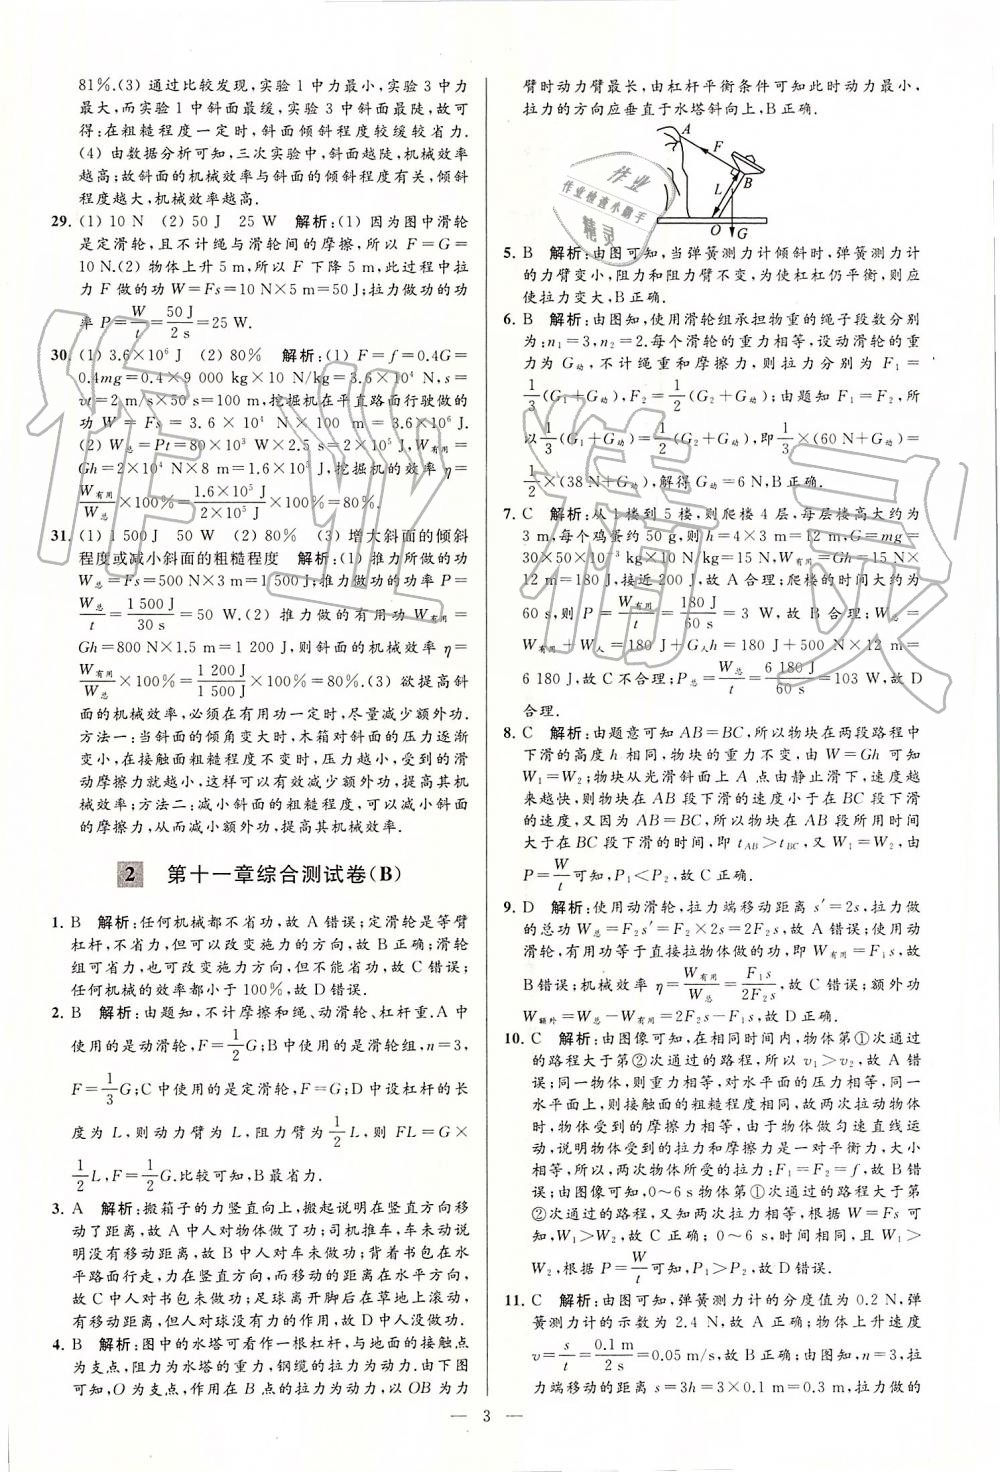 81%.(3) 通过比较发现,实验 1 中力最小,实验 3 中力
最大,而实验 1 中斜面最缓,实验 3 中斜面最陡,故可
得:在粗糙程度一定时,斜面倾斜程度较缓较省力.
(4) 由数据分析可知,三次实验中,斜面越陡,机械效率
越高;故斜面的机械效率与斜面的倾斜程度有关,倾斜
程度越大,机械效率越高.
29. (1) 10 N (2) 50 J 25 W 解析:(1) 因为图中滑轮
是定滑轮,且不计绳与滑轮间的摩擦,所以 F=G=
10 N.(2) 物体上升 5 m,所以 F 下降 5 m,此过程中拉
力 F 做的功 W=Fs=10 N×5 m=50 J;拉力做功的功
率 P=W/t=50 J/2 s=25 W.
30. (1) 3.6×10⁶ J (2) 80% 解析:(1) F=f=0.4G=
0.4mg=0.4×9 000 kg×10 N/kg=3.6×10⁴ N,s=
vt=2 m/s×50 s=100 m,挖掘机在平直路面行驶做的
功 W=Fs=3.6×10⁴ N×100 m=3.6×10⁶ J.
(2) W总=Pt=80×10³ W×2.5 s=2×10⁵ J,W有用=
Gh=2×10⁴ N×8 m=1.6×10⁵ J,挖掘机的效率 η=
W有用/W总×100%=1.6×10⁵ J/2×10⁵ J×100%=80%.
31. (1) 1 500 J 50 W (2) 80% (3) 增大斜面的倾斜
程度或减小斜面的粗糙程度 解析:(1) 推力所做的功
W总=Fs=500 N×3 m=1 500 J;推力做功的功率 P=
W总/t=1 500 J/30 s=50 W.(2) 推力做的有用功 W有用=
Gh=800 N×1.5 m=1 200 J,则斜面的机械效率 η=
W有用/W总×100%=1 200 J/1 500 J×100%=80%.(3) 欲提高斜
面的机械效率,必须在有用功一定时,尽量减少额外功.
方法一:当斜面的倾角变大时,木箱对斜面的压力逐渐
变小,在接触面粗糙程度不变时,压力越小,受到的滑
动摩擦力就越小,这样可以有效减少额外功,提高其机
械效率;方法二:减小斜面的粗糙程度,可以减小斜面
的摩擦力,从而减小额外功,提高其机械效率.
2 第十一章综合测试卷(B)
1. B 解析:任何机械都不省功,故 A 错误;定滑轮是等臂
杠杆,不省力,但可以改变施力的方向,故 B 正确;滑轮
组可省力,也可改变施力方向,但不能省功,故 C 错误;
任何机械的效率都小于 100%,故 D 错误.
2. B 解析:由题知,不计摩擦和绳、动滑轮、杠杆重.A 中
使用的是动滑轮,F=1/2G;B 中使用的是滑轮组,n=3,
F=1/3G;C 中使用的是定滑轮,F=G;D 中设杠杆的长
度为 L,则动力臂为 L,阻力臂为1/2L,则 FL=G×
1/2L,F=1/2G.比较可知,B 最省力.
3. A 解析:搬箱子的力竖直向上,搬起说明在竖直方向移
动了距离,故 A 中人对物体做了功;司机推车,车未动说
明没有移动距离,故 B 中人对车未做功;背着书包在水
平路面行走,力在竖直方向,而移动的距离在水平方向,
故 C 中人对书包未做功;足球离开脚后在草地上滚动,
有移动距离,但人对球没有力的作用,故 D 中人没做功.
4. B 解析:图中的水塔可看作一根杠杆,与地面的接触点
为支点,阻力为水塔的重力,钢缆的拉力为动力.由下图
可知,O 为支点,作用在 B 点的拉力为动力,以 OB 为力
臂时动力臂最长,由杠杆平衡条件可知此时动力最小,
拉力的方向应垂直于水塔斜向上,B 正确.
A
F
L
B
O
G
5. B 解析:由图可知,当弹簧测力计倾斜时,弹簧测力计
的力臂变小,阻力和阻力臂不变,为使杠杠仍平衡,则应
使拉力变大,B 正确.
6. B 解析:由图知,使用滑轮组承担物重的绳子段数分别
为:n₁=3,n₂=2.每个滑轮的重力相等,设动滑轮的重
力为 G动,不计绳重和摩擦力,则拉力分别为 F₁=
1/3(G₁+G动),F₂=1/2(G₂+G动);由题知 F₁=F₂,所
以1/3(G₁+G动)=1/2(G₂+G动),即1/3×(60 N+G动)=
1/2×(38 N+G动),解得 G动=6 N,B 正确.
7. C 解析:从 1 楼到 5 楼,则爬楼 4 层,每层楼高大约为
3 m,每个鸡蛋约 50 g,则 h=4×3 m=12 m,G=mg=
30×50×10⁻³ kg×10 N/kg=15 N,W有用=Gh=15 N×
12 m=180 J,接近 200 J,故 A 合理;爬楼的时间大约为
60 s,则 P=W有用/t=180 J/60 s=3 W,故 B 合理;W总=
W有用+W人=180 J+G人h=180 J+500 N×12 m=
6 180 J,故 C 不合理;P总=W总/t=6 180 J/60 s=103 W,故 D
合理.
8. C 解析:由题意可知 AB=BC,所以物块在两段路程中
下滑的高度 h 相同,物块的重力不变,由 W=Gh 可知
W₁=W₂;物块从光滑斜面上 A 点由静止滑下,速度越
来越快,则物块在 AB 段下滑的速度小于在 BC 段下滑
的速度,又因为 AB=BC,所以物块在 AB 段所用时间
大于在 BC 段下滑的时间,即 tAB>tBC,又 W₁=W₂,由
P=W/t可知,P₁<P₂,故 C 正确.
9. D 解析:使用动滑轮,拉力端移动距离 s′=2s,拉力做
的总功 W总=F₂s′=F₂×2s=2F₂s,故 A 错误;使用动
滑轮,有用功等于直接拉物体做的功,即 W有用=F₁s,故
B 错误;机械效率 η=W有用/W总=F₁s/2F₂s,故 C 错误;额外功
W额外=W总−W有用=2F₂s−F₁s,故 D 正确.
10. C 解析:由图像可知,在相同时间内,物体第①次通过
的路程大于第②次通过的路程,所以 v₁>v₂,故 A 错
误;同一物体,则重力相等,对水平面的压力相等,同一
水平面上,则接触面的粗糙程度相同,故两次拉动物体
时,物体受到的摩擦力相等,由于物体做匀速直线运
动,说明物体受到的拉力和摩擦力是一对平衡力,大小
相等,所以,两次物体所受的拉力:F₁=F₂=f,故 B 错
误;由图像可知,0~6 s 物体第①次通过的路程大于第
②次通过的路程,又知两次拉力相等,根据 W=Fs 可
知,W₁>W₂,故 C 正确;0~6 s,时间相同,且 W₁>
W₂,根据 P=W/t可知,P₁>P₂,故 D 错误.
11. C 解析:由图可知,弹簧测力计的分度值为 0.2 N,弹
簧测力计的示数为 2.4 N,故 A 正确;物体上升速度
v=s/t=0.1 m/2 s=0.05 m/s,故 B 正确;由图知,n=3,拉
力端移动的距离 s=3h=3×0.1 m=0.3 m,拉力做的
— 3 —
作业
作业检查小助手
精灵
作业精灵